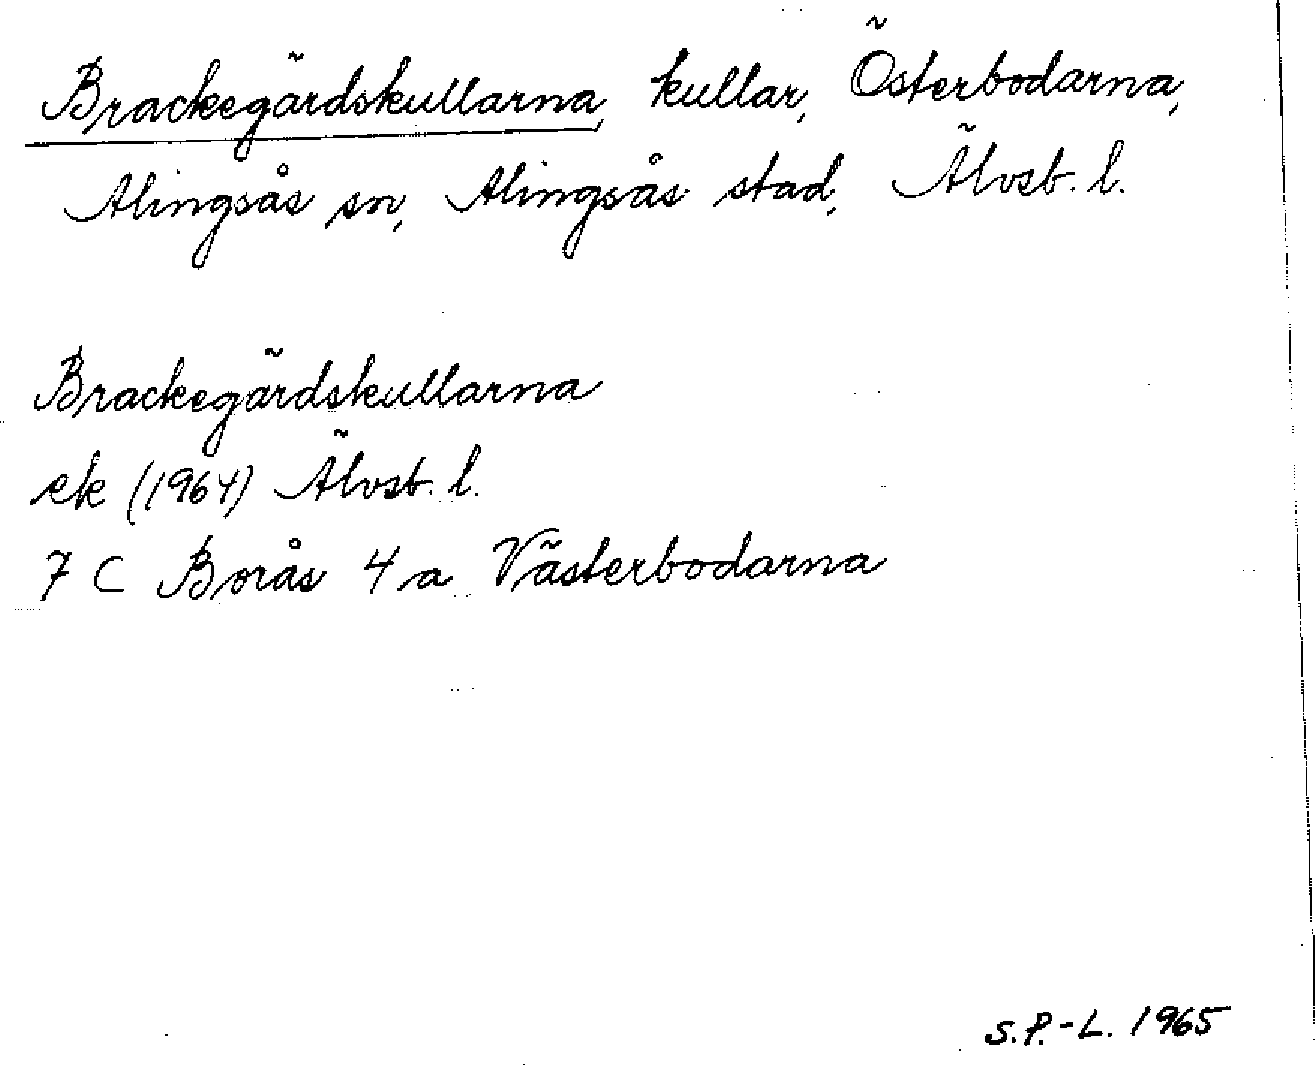 Brackegärdskullarna, kullar, Österbodarna,
Alingsås sn, Alingsås stad, Älvsb. l.
Brackegärdskullarna
ek (1964) Älvsb. l.
7 C Borås 4 a Västerbodarna
S.P.-L. 1965